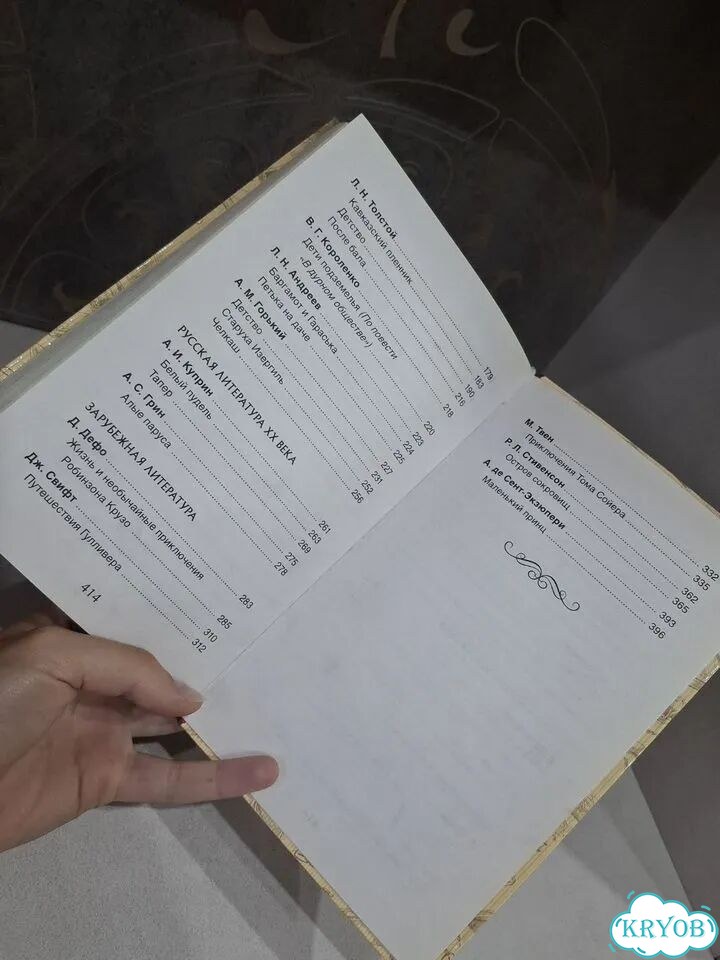 Л. Н. Толстой 179
Кавказский пленник 183
Детство 190
После бала 216
В. Г. Короленко 218
Дети подземелья (По повести
«В дурном обществе») 220
Л. Н. Андреев 223
Баргамот и Гараська 224
Петька на даче 225
А. М. Горький 227
Детство 231
Старуха Изергиль 252
Челкаш 256
РУССКАЯ ЛИТЕРАТУРА XX ВЕКА
А. И. Куприн 261
Белый пудель 263
Тапер 269
А. С. Грин 275
Алые паруса 278
ЗАРУБЕЖНАЯ ЛИТЕРАТУРА
Д. Дефо 283
Жизнь и необычайные приключения
Робинзона Крузо 285
Дж. Свифт 310
Путешествия Гулливера 312
414
М. Твен 332
Приключения Тома Сойера 335
Р.Л. Стивенсон 362
Остров сокровищ 365
А. де Сент-Экзюпери 393
Маленький принц 396
KRYOB